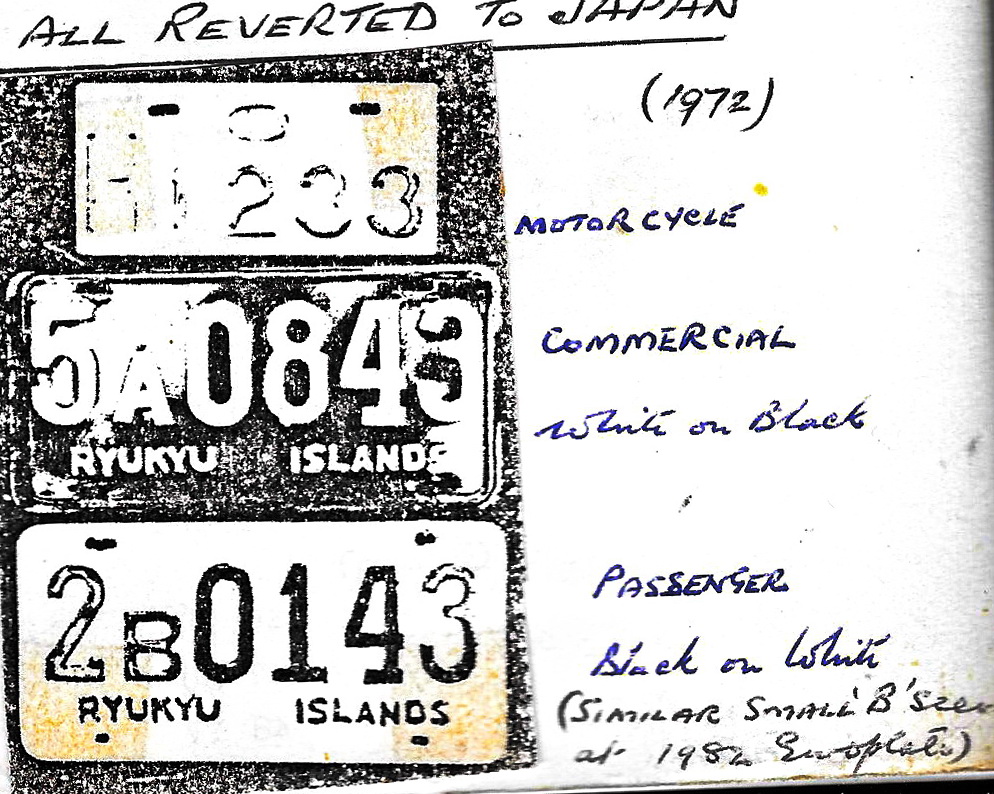 ALL REVERTED TO JAPAN
(1972)
H 1233
MOTORCYCLE
5A0843
RYUKYU ISLANDS
COMMERCIAL
White on Black
2B0143
RYUKYU ISLANDS
PASSENGER
Black on White
(SIMILAR SMALL 'B' Seen
at 1982 Europlate)